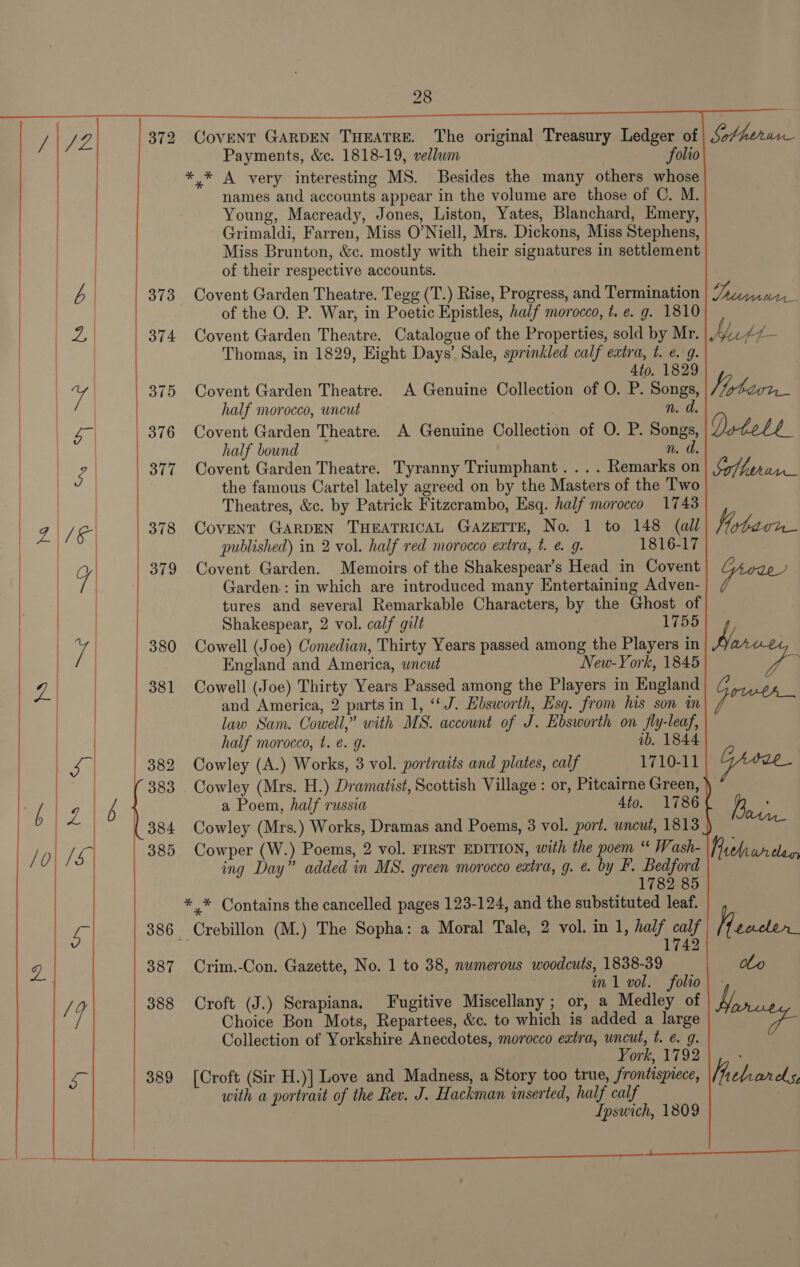 28
1 12 372 COVENT GARDEN THEATRE. The original Treasury Ledger of Sotheran
Payments, &c. 1818-19, vellum folio
*** A very interesting MS. Besides the many others whose
names and accounts appear in the volume are those of C. M.
Young, Macready, Jones, Liston, Yates, Blanchard, Emery,
Grimaldi, Farren, Miss O'Niell, Mrs. Dickons, Miss Stephens,
Miss Brunton, &c. mostly with their signatures in settlement
of their respective accounts.
6 373 Covent Garden Theatre. Tegg (T.) Rise, Progress, and Termination
of the O. P. War, in Poetic Epistles, half morocco, t. e. g. 1810
2 374 Covent Garden Theatre. Catalogue of the Properties, sold by Mr. Nutt
Thomas, in 1829, Eight Days' Sale, sprinkled calf extra, t. e. g.
4to. 1829
7 375 Covent Garden Theatre. A Genuine Collection of O. P. Songs, Hobson
half morocco, uncut n. d.
5 376 Covent Garden Theatre. A Genuine Collection of O. P. Songs, Dobell
half bound n. d.
3 377 Covent Garden Theatre. Tyranny Triumphant .... Remarks on Sotheran
the famous Cartel lately agreed on by the Masters of the Two
Theatres, &c. by Patrick Fitzcrambo, Esq. half morocco 1743
2 18 378 COVENT GARDEN THEATRICAL GAZETTE, No. 1 to 148 (all Hobson
published) in 2 vol. half red morocco extra, t. e. g. 1816-17
9 379 Covent Garden. Memoirs of the Shakespear's Head in Covent Groze
Garden: in which are introduced many Entertaining Adven-
tures and several Remarkable Characters, by the Ghost of
Shakespear, 2 vol. calf gilt 1755
7 380 Cowell (Joe) Comedian, Thirty Years passed among the Players in Harvey
England and America, uncut New-York, 1845
2 381 Cowell (Joe) Thirty Years Passed among the Players in England Gower
and America, 2 parts in 1, "J. Ebsworth, Esq. from his son in
law Sam. Cowell," with MS. account of J. Ebsworth on fly-leaf,
half morocco, t. e. g. ib. 1844
5 382 Cowley (A.) Works, 3 vol. portraits and plates, calf 1710-11 Groze
383 Cowley (Mrs. H.) Dramatist, Scottish Village: or, Pitcairne Green,
a Poem, half russia 4to. 1786
6 2 6 384 Cowley (Mrs.) Works, Dramas and Poems, 3 vol. port. uncut, 1813 Bain
10 15 385 Cowper (W.) Poems, 2 vol. FIRST EDITION, with the poem "Wash- Richardson
ing Day" added in MS. green morocco extra, g. e. by F. Bedford
1782-85
*** Contains the cancelled pages 123-124, and the substituted leaf.
5 386 Crebillon (M.) The Sopha: a Moral Tale, 2 vol. in 1, half calf Reader
1742
2 387 Crim.-Con. Gazette, No. 1 to 38, numerous woodcuts, 1838-39 do
in 1 vol. folio
19 388 Croft (J.) Scrapiana. Fugitive Miscellany; or, a Medley of Harvey
Choice Bon Mots, Repartees, &c. to which is added a large
Collection of Yorkshire Anecdotes, morocco extra, uncut, t. e. g.
York, 1792
5 389 [Croft (Sir H.)] Love and Madness, a Story too true, frontispiece, Richards
with a portrait of the Rev. J. Hackman inserted, half calf
Ipswich, 1809